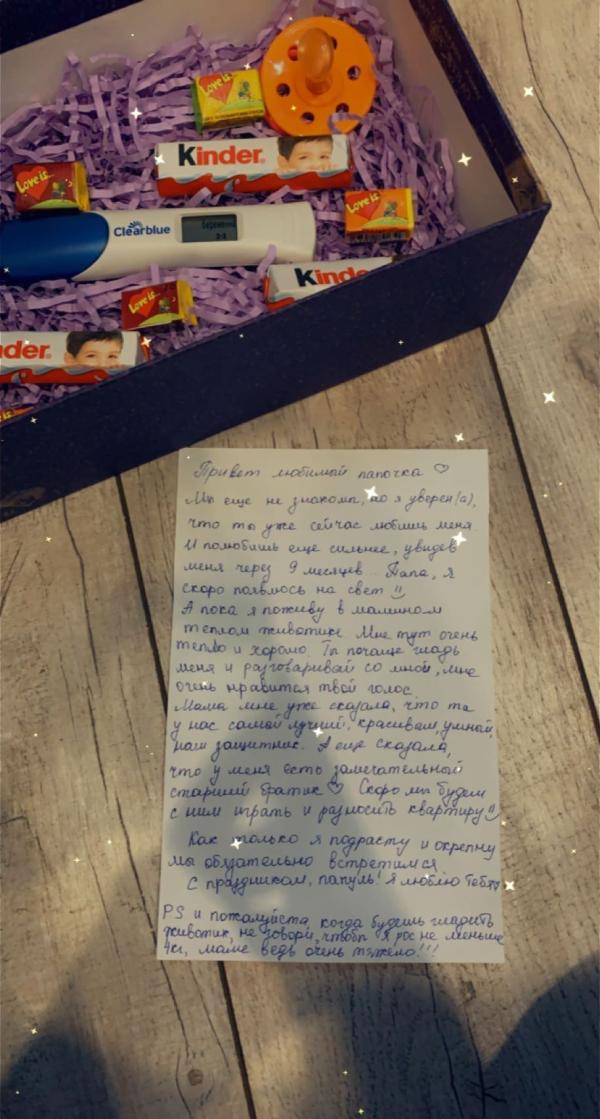 Love is...
Kinder
Love is...
Love is..
Clearblue
Беременна
2-3
Kinde
Love is..
der
Привет любимый папочка ♡
Мы еще не знакомы, но я уверен(а),
что ты уже сейчас любишь меня.
И полюбишь еще сильнее, увидев
меня через 9 месяцев... Папа, я
скоро появлюсь на свет !!
А пока я поживу в мамином
теплом животике. Мне тут очень
тепло и хорошо. Ты почаще гладь
меня и разговаривай со мной, мне
очень нравится твой голос.
Мама мне уже сказала, что ты
у нас самый лучший, красивый, умный,
наш защитник. А еще сказала,
что у меня есть замечательный
старший братик ♡ Скоро мы будем
с ним играть и разносить квартиру !!
Как только я подрасту и окрепну
мы обязательно встретимся.
С праздником, папуль! Я люблю тебя
PS и пожалуйста, когда будешь гладить
животик, не говори, чтобы я рос не меньше
4кг, маме ведь очень тяжело!!!